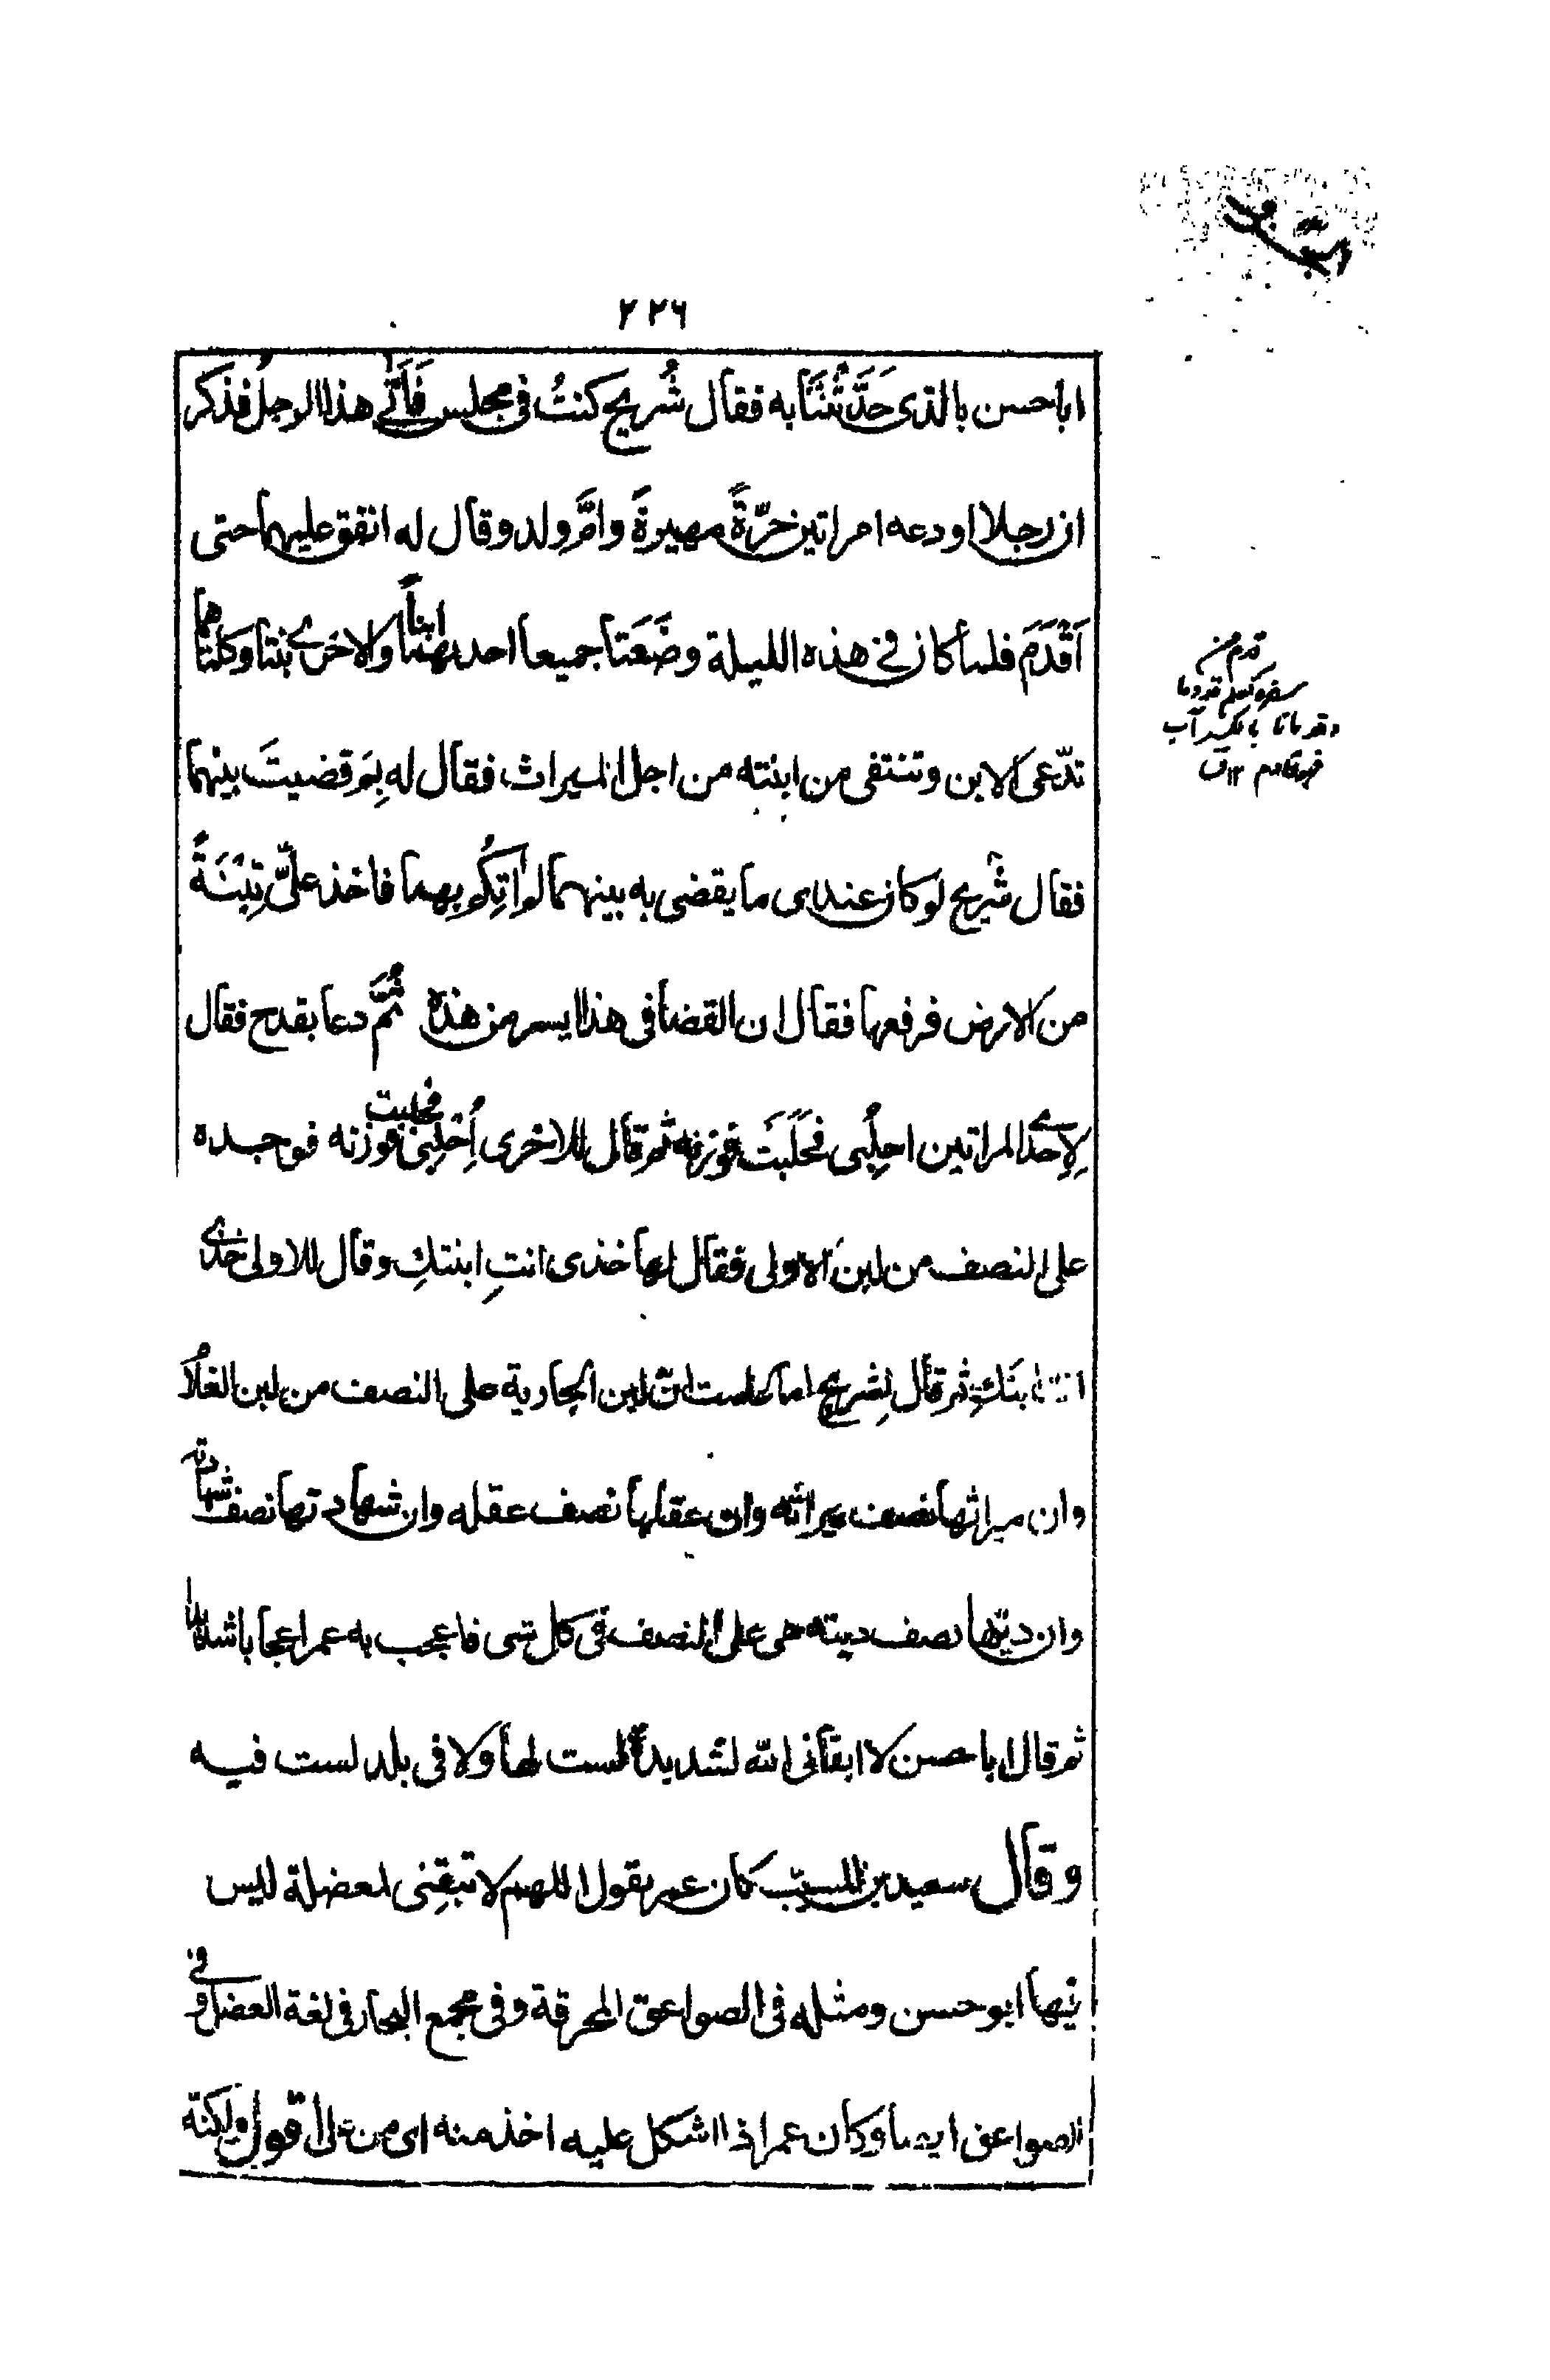 ٢٢٦
ابا حسن بالذى حَدَّثْتَنَا به فقال شُريح كنتُ فى مجلس فَاَتٰى هذا الرجلُ فذكر
ان رجلا اودعه امراتين حرّةً مهيرةً وامَّ ولد وقال له انفق عليهما حتى
اَقْدَمَ فلما كان فى هذه الليلة وضَعَتا جميعا احدٮهما ابناً والاخرى بنتا وكلتاهما
تدّعى الابن وتنتفى من ابنته من اجل الميراث فقال له بِمَ قضيتَ بينهما
فقال شُريح لو كان عندى ما يقضى به بينهما لم اٰتِكُم بهما فاخذ علىّ تِبْنَةً
من الارض فرفعها فقال ان القضا فى هذا ايسر من هذه ثُمَّ دعا بقدح فقال
لِاِحدى المراتين احلِبُى فحَلَبَتْ فوزنه ثم قال للاخرى اُحْلِبْى فحلبت فوزنه فوجده
على النصف من لبن الاولى فقال لها خذى انتِ ابنتكِ وقال للاولى خذى
انت ابنَكِ ثم قال لِشريح اما علمت انّ لبن الجارية على النصف من لبن الغلام
وان ميراثها نصف ميراثه وان عقلها نصف عقله وان شهادتها نصف شهادته
وان ديتها نصف ديته هى على النصف فى كل شى فاعجب به عمر اعجابا شديدا
ثم قال ابا حسن لا ابقانى الله لشديدة لست لها ولا فى بلد لست فيه
وقال سعيد بن المسيّب كان عمر يقول اللهم لا تبقِنى لمعضلة ليس
فيها ابو حسن ومثله فى الصواعق المحرقة وفى مجمع البحار فى لغة العضل وفى
الصواعق ايضا وكان عمر اذا اشكل عليه اخذ منه اى من على اقول ولكنّه
قدم من
سفره كعلم قدوما
فهو قادم ١٢ ق